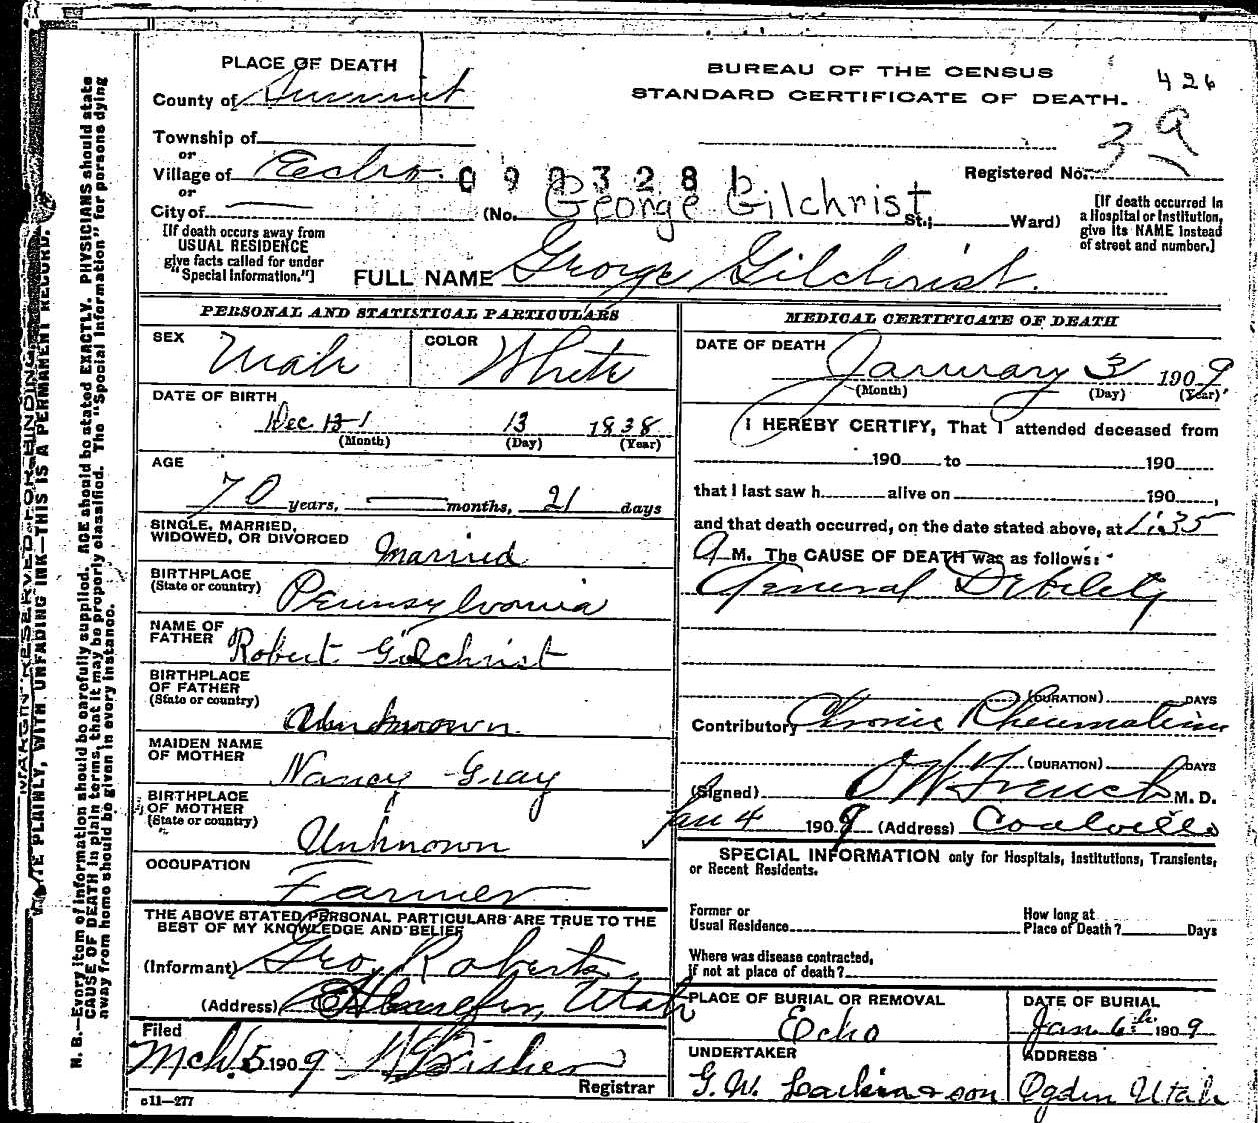 PLACE OF DEATH
County of Summit
Township of
or
Village of Echo.
or
City of
[If death occurs away from
USUAL RESIDENCE
give facts called for under
"Special Information."]
BUREAU OF THE CENSUS
STANDARD CERTIFICATE OF DEATH.
426
3 9
Registered No.
0900328
(No. George Gilchrist St.; Ward)
[If death occurred in
a Hospital or Institution,
give its NAME instead
of street and number.]
FULL NAME George Gilchrist.
PERSONAL AND STATISTICAL PARTICULARS
SEX Male
COLOR White
DATE OF BIRTH
Dec 13 1838
(Month) (Day) (Year)
AGE
70 years, months, 21 days
SINGLE, MARRIED,
WIDOWED, OR DIVORCED Married
BIRTHPLACE
(State or country) Pennsylvania
NAME OF
FATHER Robert Gilchrist
BIRTHPLACE
OF FATHER
(State or country) Unknown
MAIDEN NAME
OF MOTHER Nancy Gray
BIRTHPLACE
OF MOTHER
(State or country) Unknown
OCCUPATION
Farmer
THE ABOVE STATED PERSONAL PARTICULARS ARE TRUE TO THE
BEST OF MY KNOWLEDGE AND BELIEF
(Informant) Geo Roberts
(Address) Utah
Filed
Mch. 5 1909
Registrar
c11—277
MEDICAL CERTIFICATE OF DEATH
DATE OF DEATH
January 3 1909
(Month) (Day) (Year)
I HEREBY CERTIFY, That I attended deceased from
190 to 190
that I last saw h alive on 190 ,
and that death occurred, on the date stated above, at 1:35
A M. The CAUSE OF DEATH was as follows:
General Debility
(DURATION) DAYS
Contributory Chronic Rheumatism
(DURATION) DAYS
(Signed) French M. D.
Jan 4 1909 (Address) Coalville
SPECIAL INFORMATION only for Hospitals, Institutions, Transients,
or Recent Residents.
Former or
Usual Residence
How long at
Place of Death? Days
Where was disease contracted,
if not at place of death?
PLACE OF BURIAL OR REMOVAL
Echo
DATE OF BURIAL
Jan 6th 1909
UNDERTAKER
G. W. Larkin & son
ADDRESS
Ogden Utah
MARGIN RESERVED FOR BINDING
WRITE PLAINLY, WITH UNFADING INK—THIS IS A PERMANENT RECORD.
N. B.—Every item of information should be carefully supplied. AGE should be stated EXACTLY. PHYSICIANS should state
CAUSE OF DEATH in plain terms, that it may be properly classified. The "Special Information" for persons dying
away from home should be given in every instance.